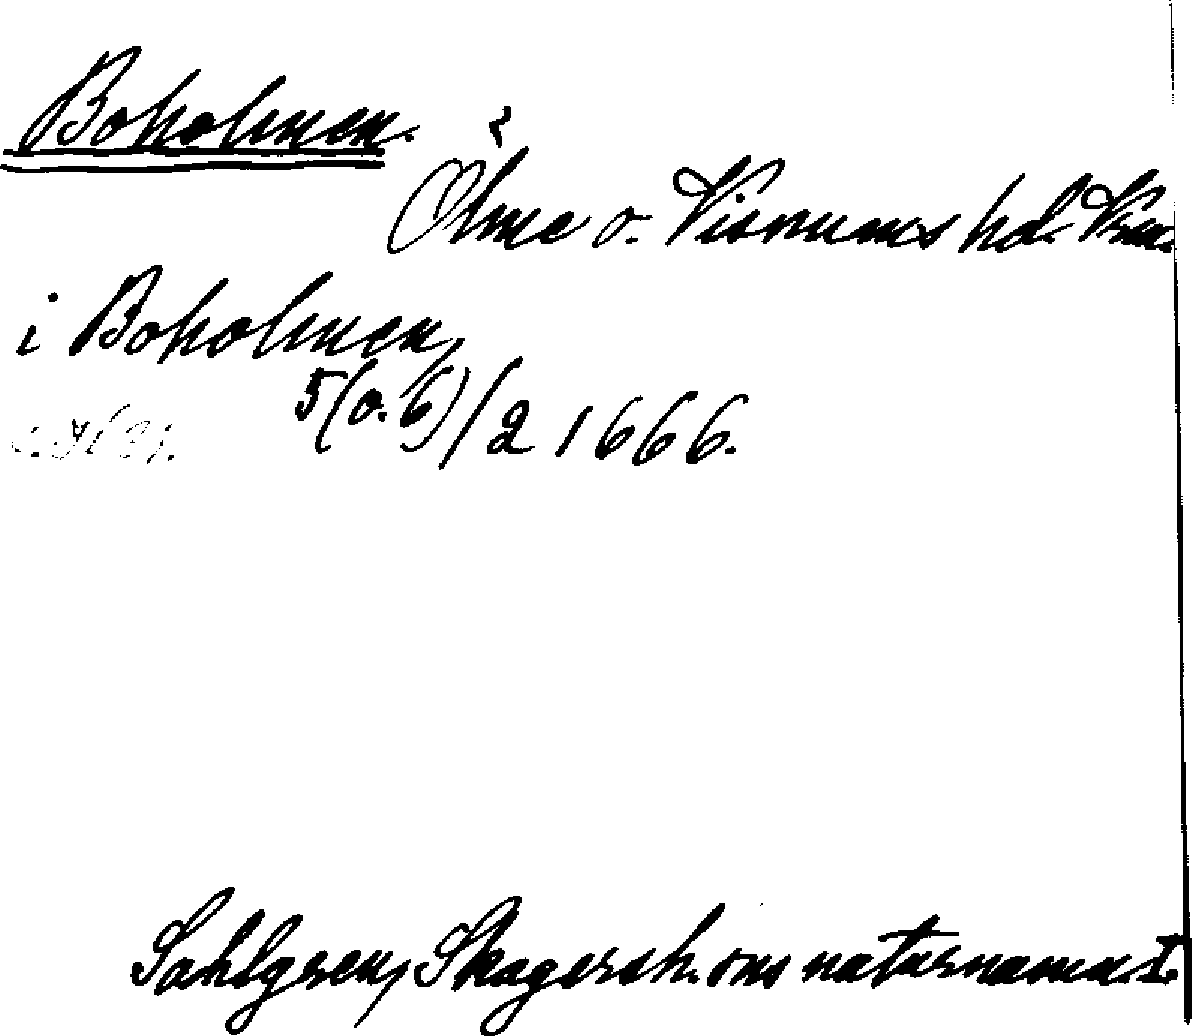 Boholmen.
Ölme o. Visnums hd. Vrm.
i Boholmen,
5(o. 6)/2 1666.
Sahlgren, Skagersh. oms naturnamn I.